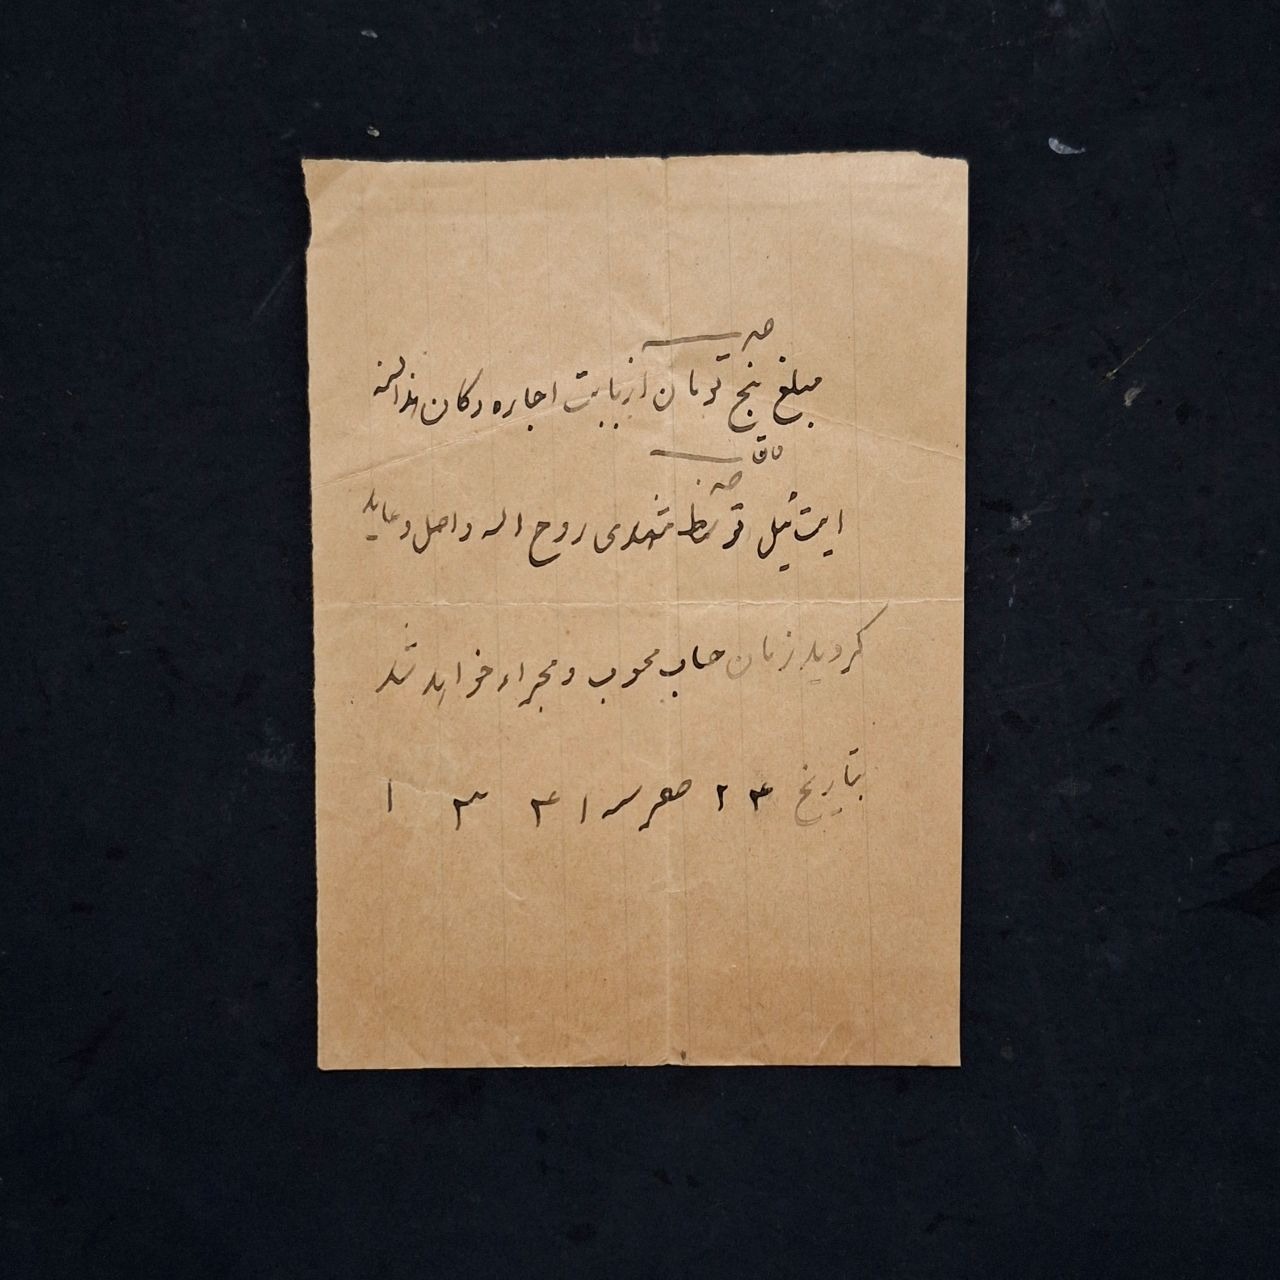 مبلغ پنج تومان از بابت اجاره دکان هذه السنه
ایت ئیل توسط مشهدی روح اله واصل و عاید
گردید زمان حساب محسوب و مجراء خواهد شد
بتاریخ ۲۴ صفر سنه ۱۳۴۱